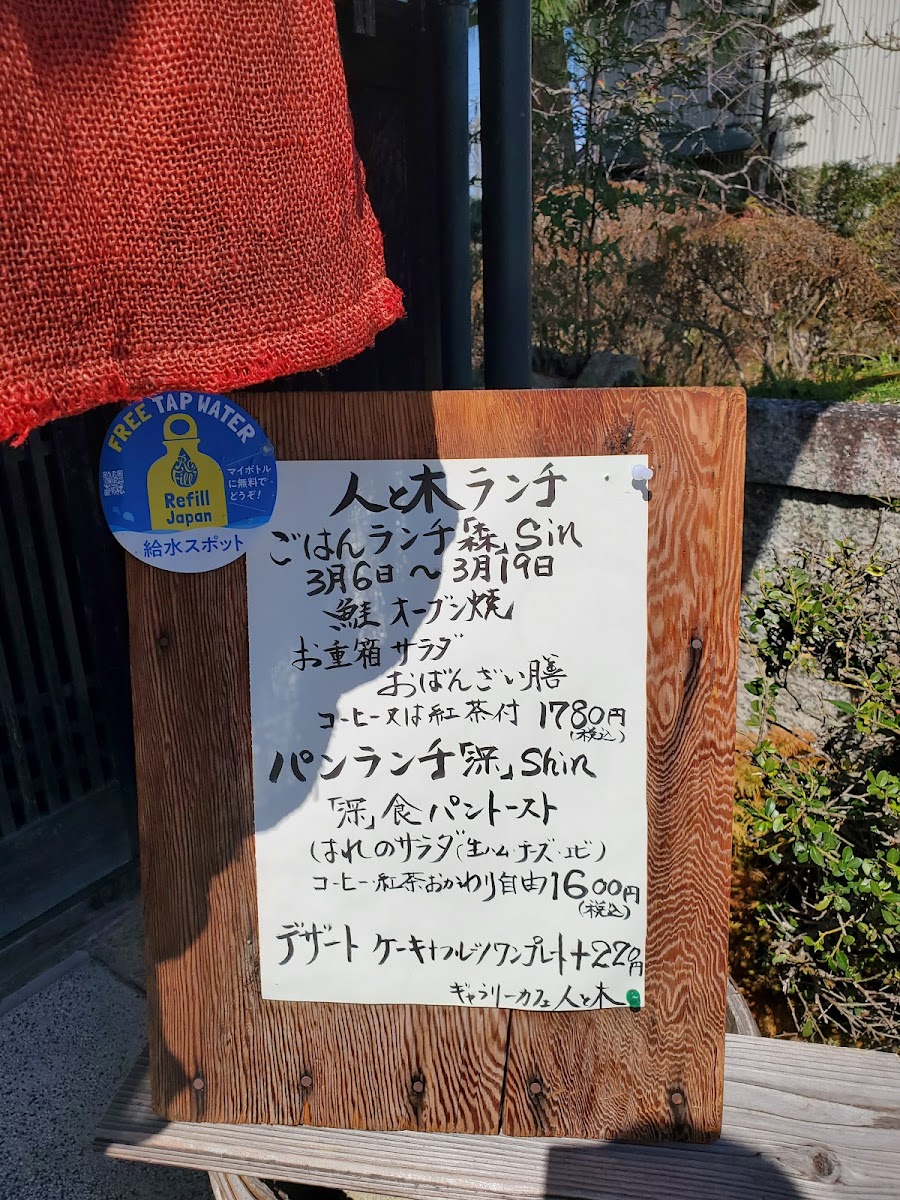 FREE TAP WATER
Refill
Refill
Japan
マイボトル
に無料で
どうぞ!
給水スポット
人と木ランチ
ごはんランチ「森」Sin
3月6日〜3月19日
鮭オーブン焼
お重箱サラダ
おばんざい膳
コーヒー又は紅茶付 1780円
(税込)
パンランチ「深」Shin
「深」食パントースト
はれのサラダ(生ハム・チーズ・エビ)
コーヒー・紅茶おかわり自由1600円
(税込)
デザート ケーキ+フルーツワンプレート+220円
ギャラリーカフェ人と木